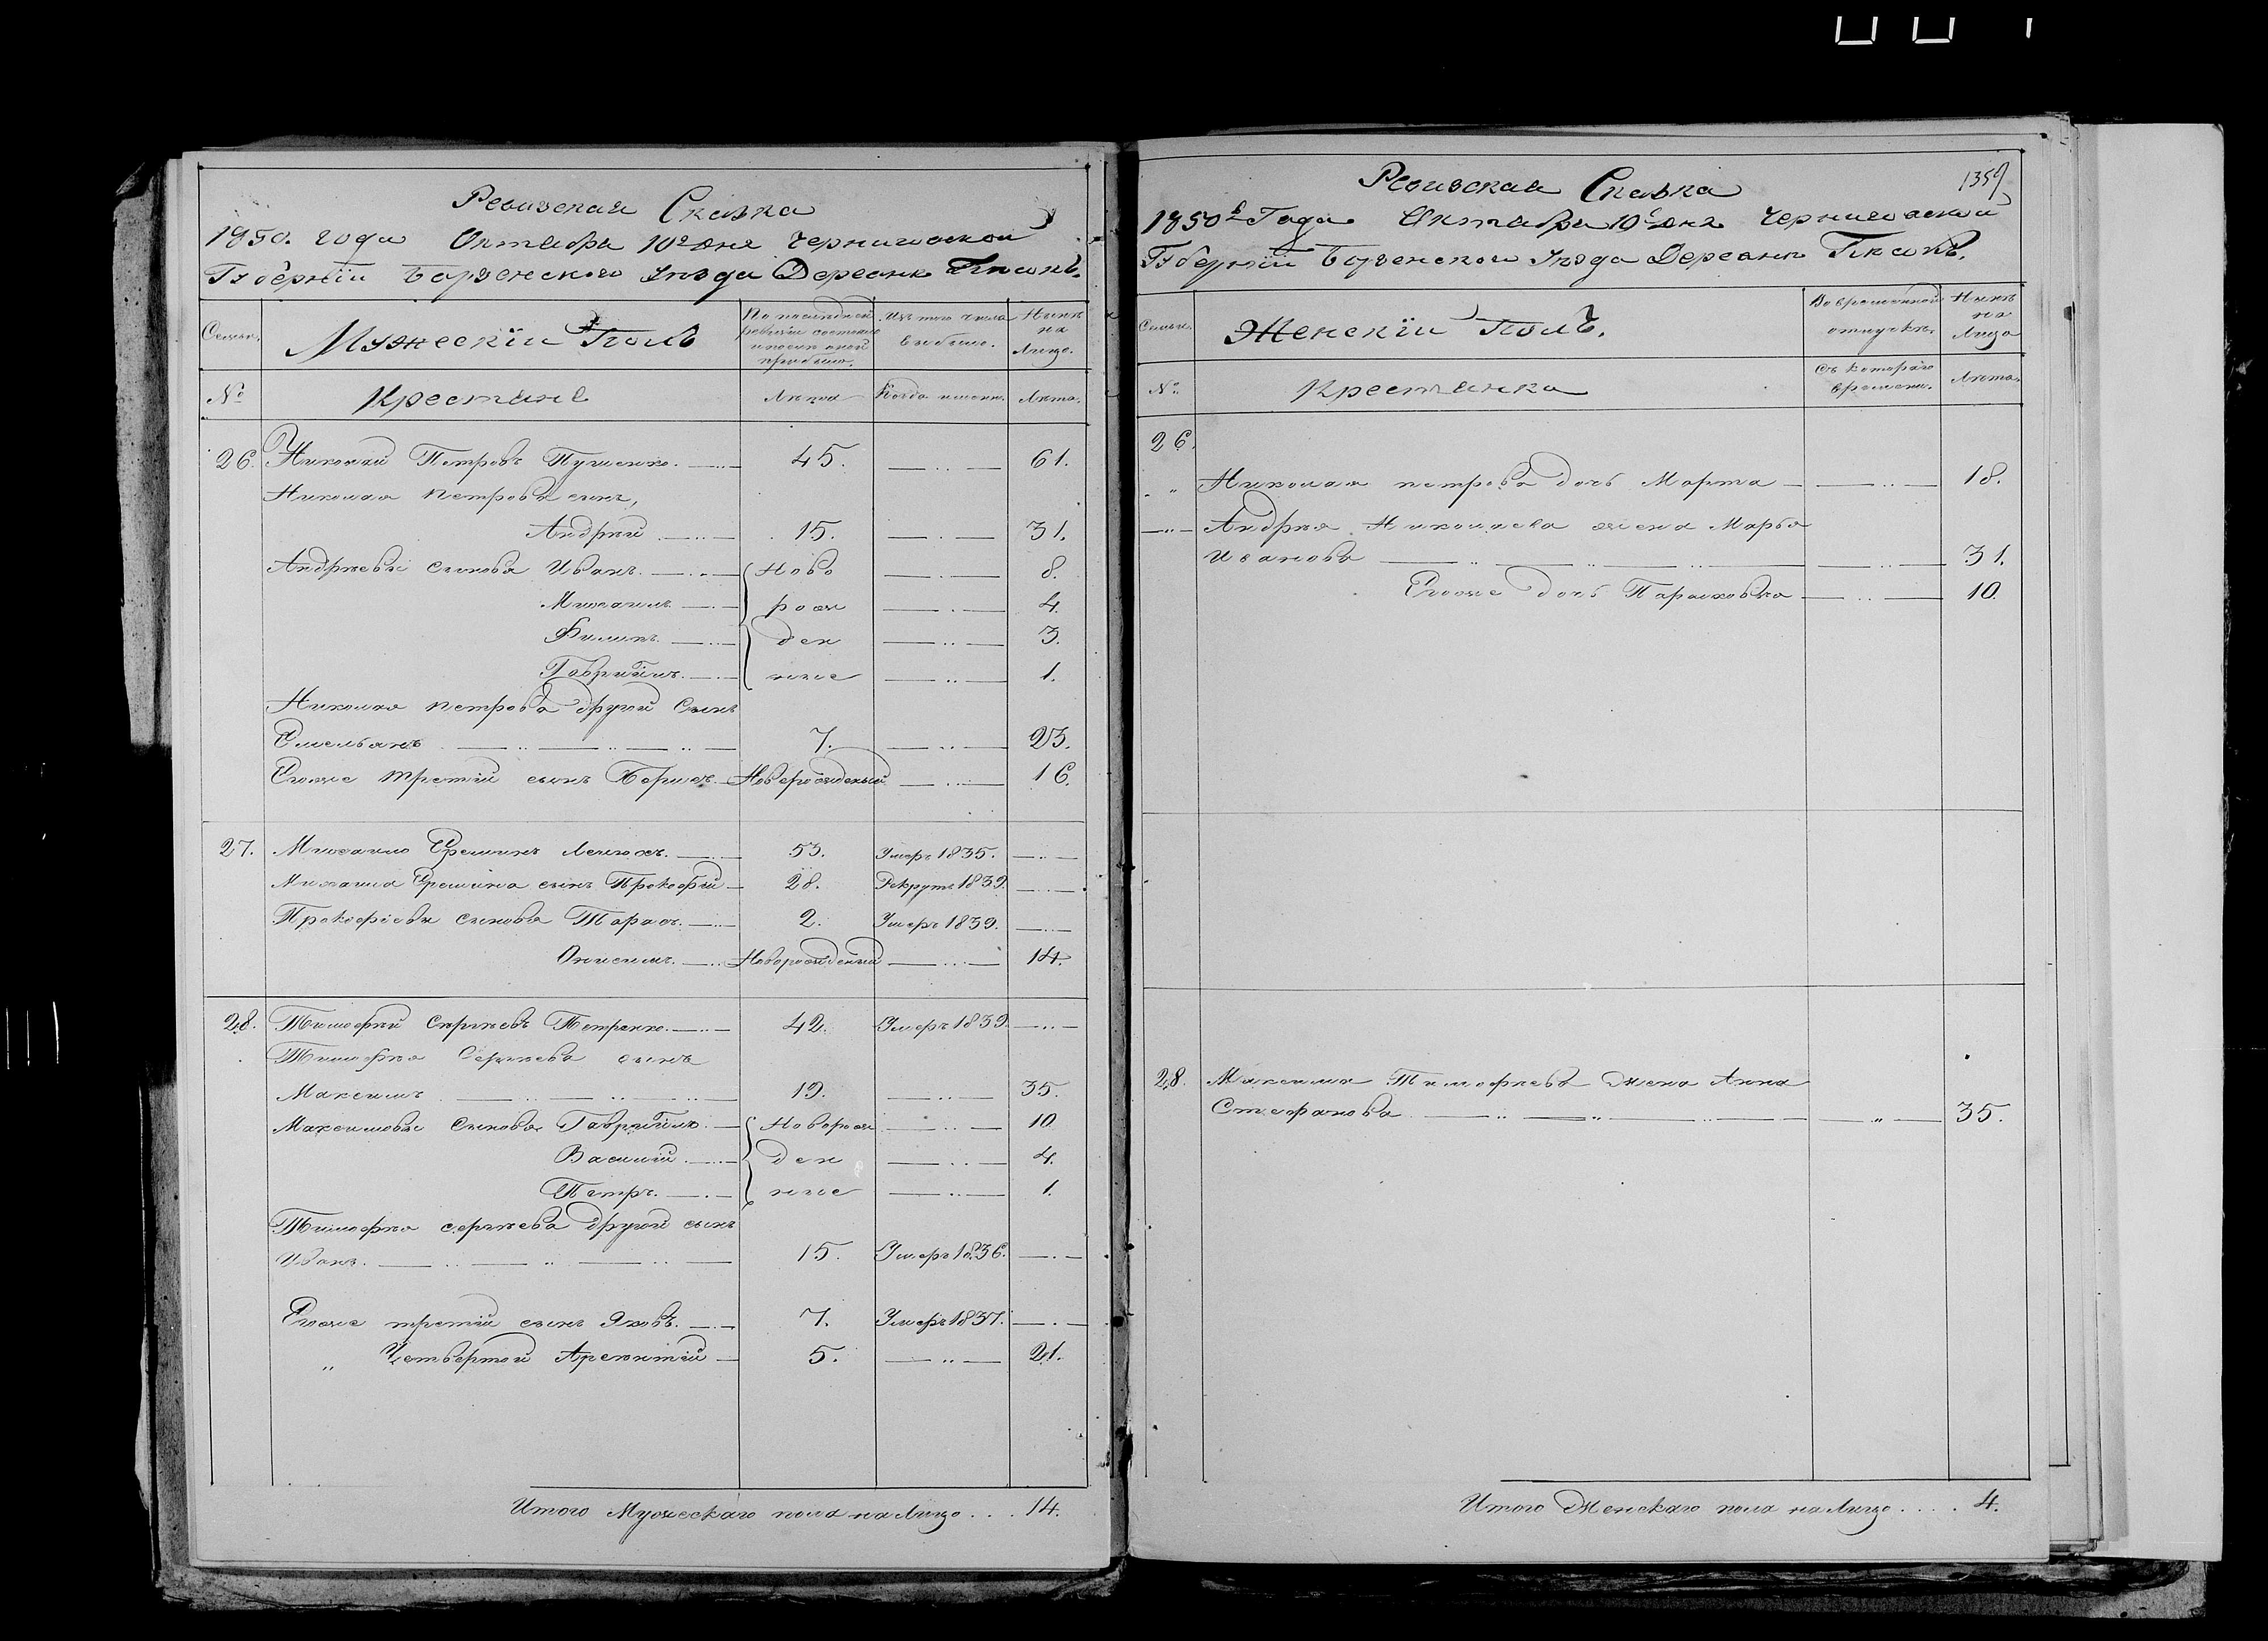 Ревизская Сказка
1850. года Октября 10го дня Черниговской
Губернїи Борзенского Уезда Деревни
Семьи.
Мужескїй Полъ
По последней
ревизїи состояло
и после оной
прибыло.
Изъ того числа
выбыло.
Ныне
на
Лицо.
№
Крестьяне
Лета
Когда именно.
Лета.
26. Николай Петровъ Пушенко. 45. 61.
Николая Петрова сынъ,
Андрей 15. 31.
Андреевы сыновья Иванъ. Ново 8.
Михаилъ рож 4.
Филипъ. ден 3.
Гаврїилъ. ные 1.
Николая Петрова другой Сынъ
Емельянъ 7. 23.
Егоже третїй сынъ Борисъ. Новорожденый 16.
27. Михаило Ереминъ 53. Умеръ 1835.
Михаила Еремина сынъ Прокофїй 28. Рекрутъ 1839.
Прокофїевы сыновья Тарасъ. 2. Умеръ 1839.
Онисимъ. Новорожденый 14.
28. Тимофей Сергеевъ Петренко. 42. Умеръ 1839.
Тимофея Сергеева сынъ
Максимъ 19. 35.
Максимовы Сыновья Гаврїилъ. Наворож 10
Василїй ден 4.
Петръ. ные 1.
Тимофея сергеева другой сынъ
Иванъ. 15. Умеръ 1836.
Егоже третїй сынъ Яковъ. 7. Умеръ 1837.
„ Четвертой Арсентїй 5. 21.
Итого Мужескаго пола на Лицо . . . 14.
1359
Ревизская Сказка
1850го Года Октября 10го дня Черниговской
Губернїи Борзенского Уезда Деревни
Семьи.
Женскїй Полъ.
Во временной
отлучке.
Ныне
на
Лицо
№
Крестьянка
Съ котораго
времени.
Лета.
26.
„ Николая петрова дочь Марта 18.
Андрея Николаева жена Марья
Иванова 31.
Егоже дочь Парасковья 10.
28. Максима Тимофеева Жена Анна
Стефанова „ 35.
Итого Женскаго пола на Лицо . . . . 4.